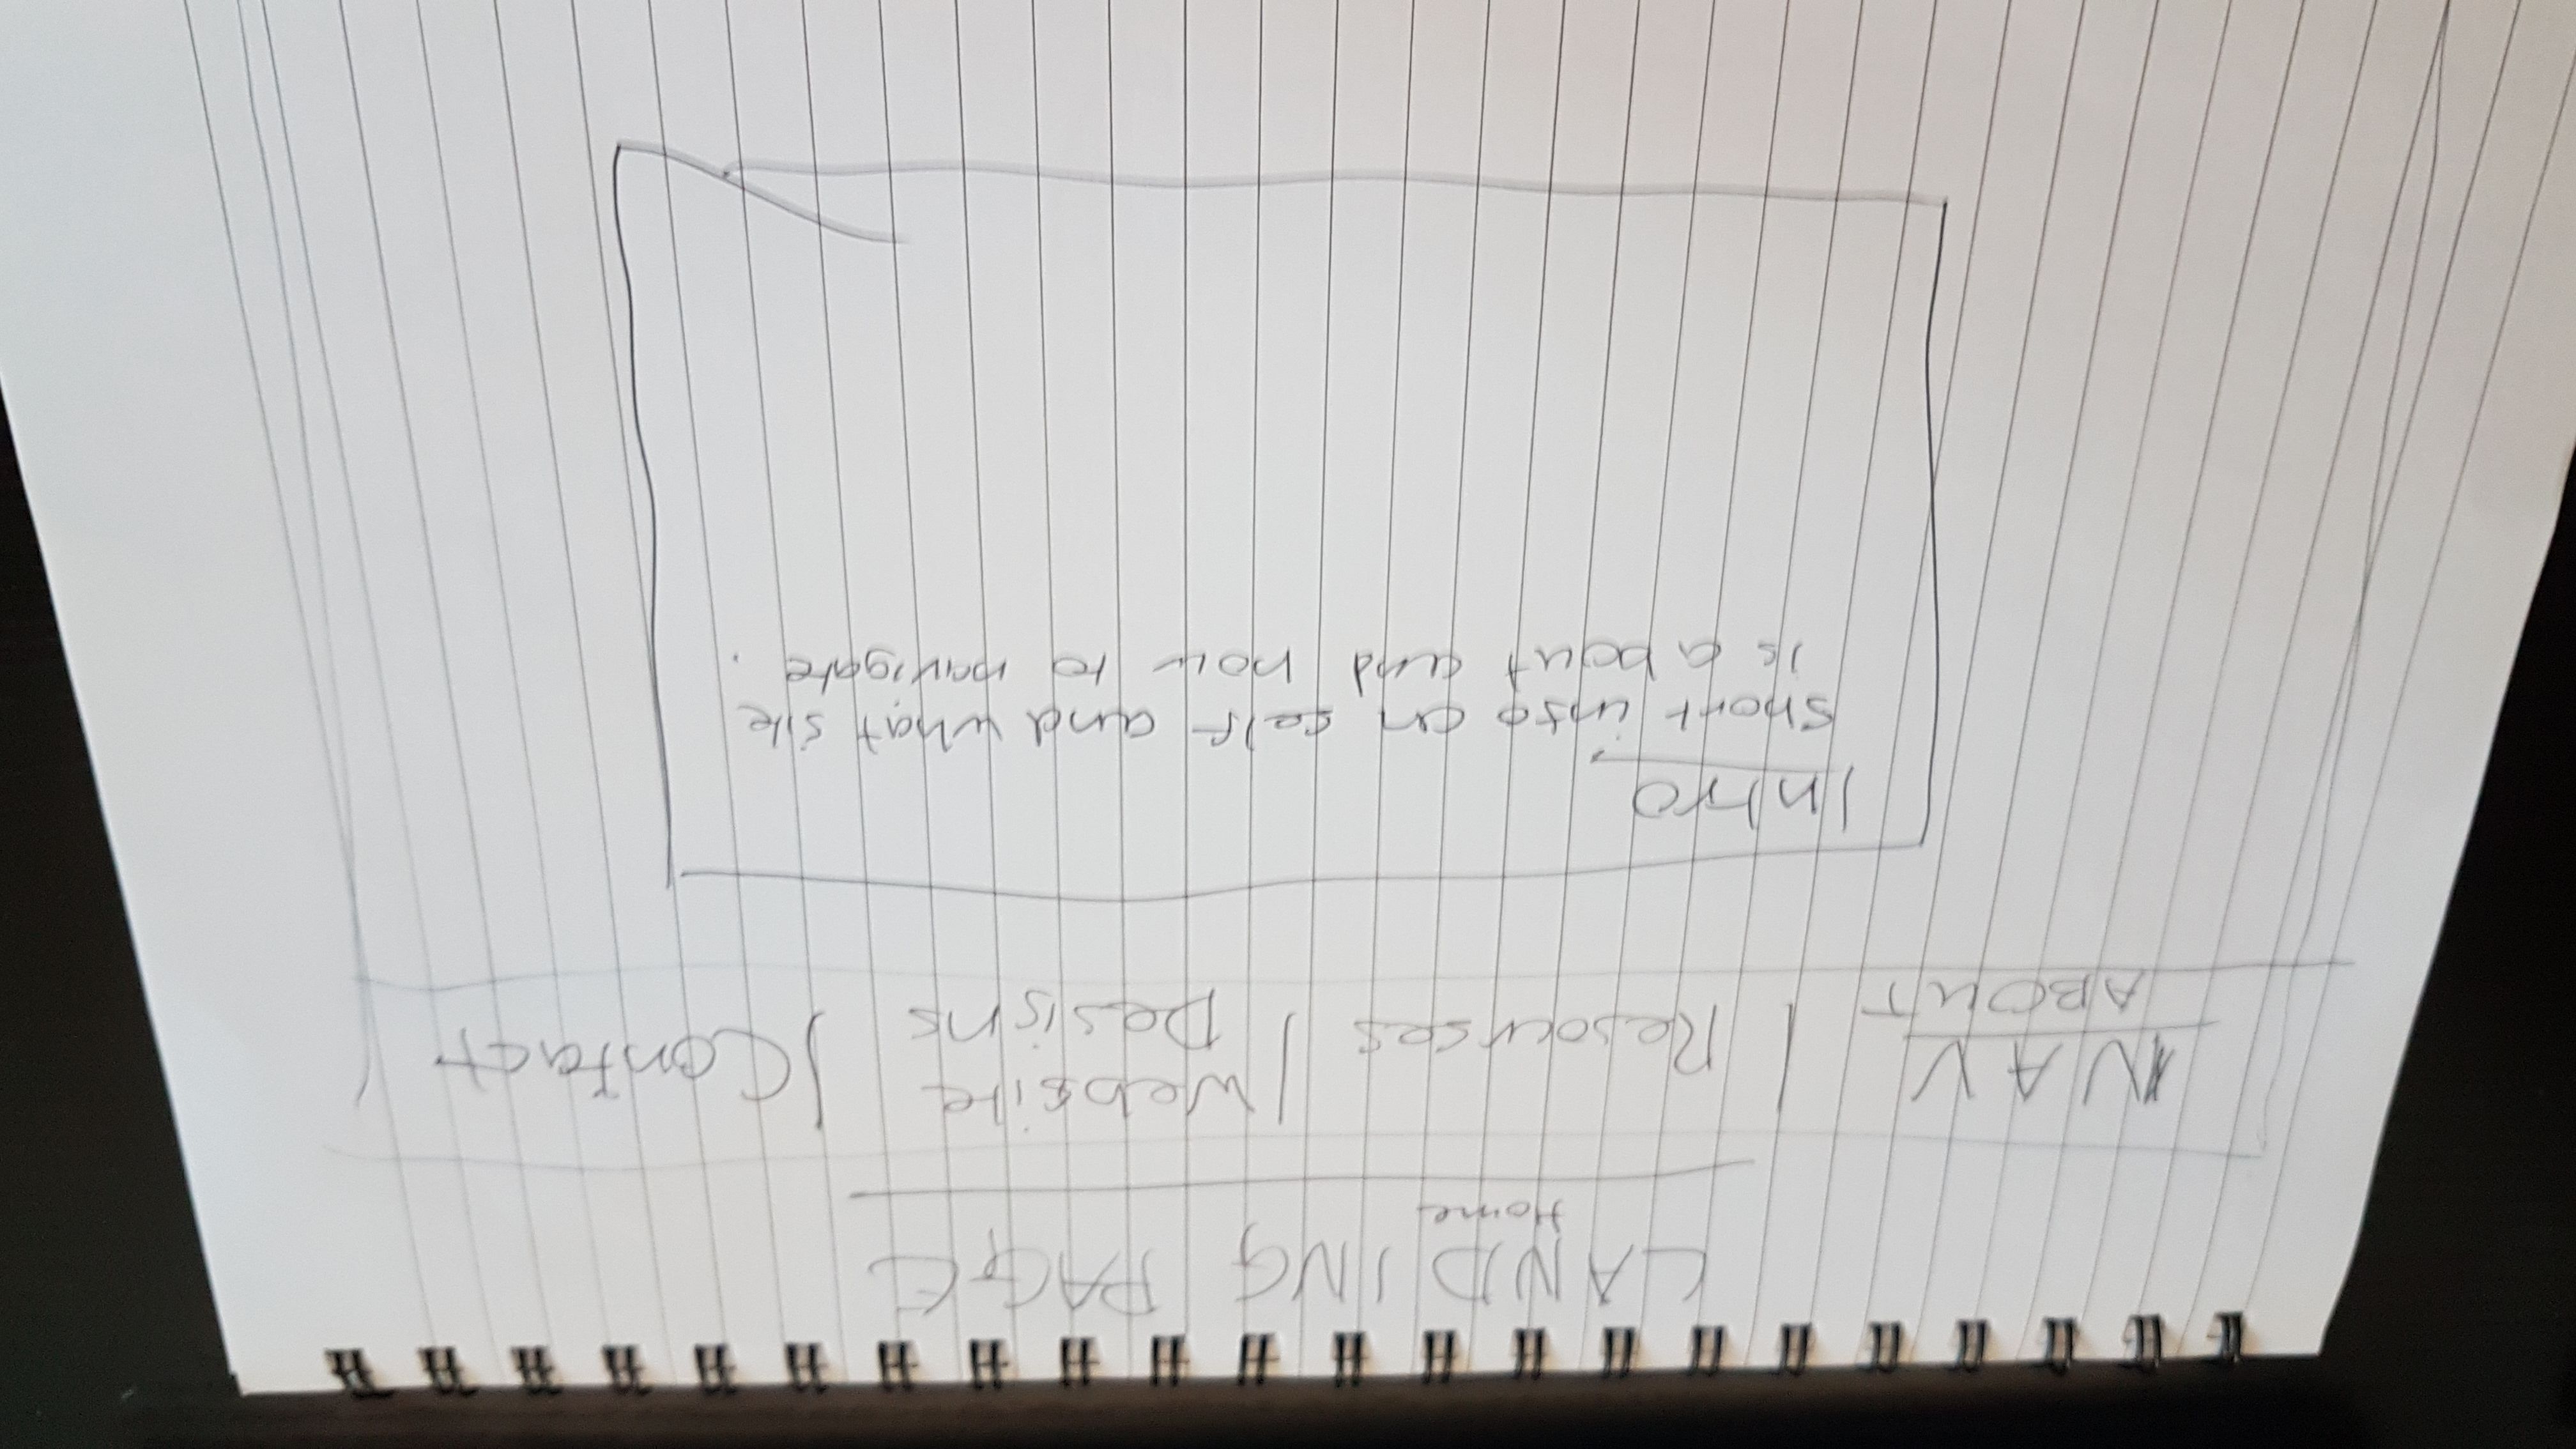 LANDING PAGE
Home
NAV | Resourses | Website Designs | Contact
ABOUT
Intro
Short info on self and what site
is about and how to navigate.